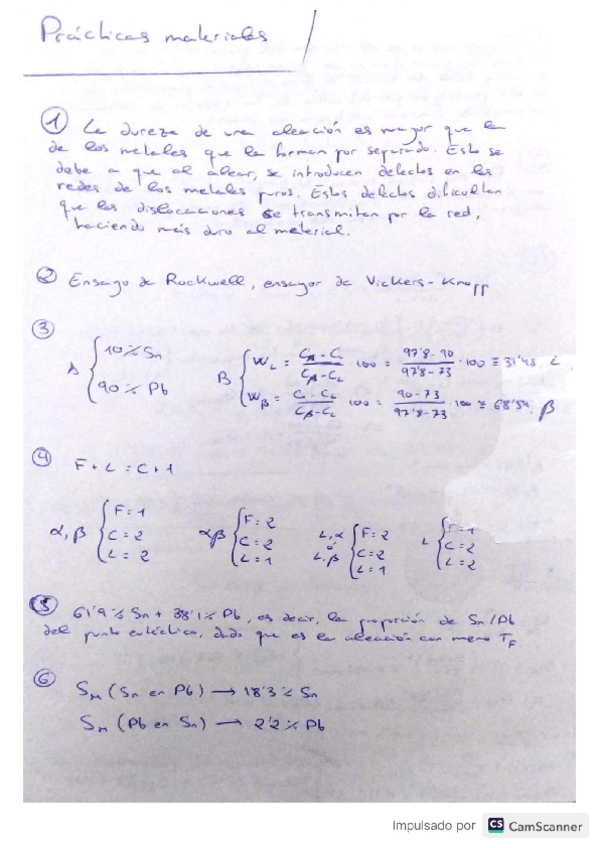 Prácticas materiales
① La dureza de una aleación es mayor que la
de los metales que la forman por separado. Esto se
debe a que al alear, se introducen defectos en las
redes de los metales puros. Estos defectos dificultan
que las dislocaciones se transmitan por la red,
haciendo más duro al material.
② Ensayo de Rockwell, ensayor de Vickers-Knopp
③
A { 10% Sn
90% Pb
B { W_L = (C_β - C_0)/(C_β - C_L) · 100 = (97'8 - 90)/(97'8 - 73) · 100 ≅ 31'45 % L
W_β = (C_0 - C_L)/(C_β - C_L) · 100 = (90 - 73)/(97'8 - 73) · 100 ≅ 68'54 % β
④ F + L = C + 1
α, β { F = 1 C = 2 L = 2
αβ { F = 2 C = 2 L = 1
L, α o L, β { F = 2 C = 2 L = 1
L { F = 1 C = 2 L = 2
⑤ 61'9% Sn + 38'1% Pb, es decir, la proporción de Sn/Pb
del punto eutéctico, dado que es la aleación con menor T_F
⑥ S_M (Sn en Pb) → 18'3% Sn
S_M (Pb en Sn) → 2'2% Pb
Impulsado por CS CamScanner